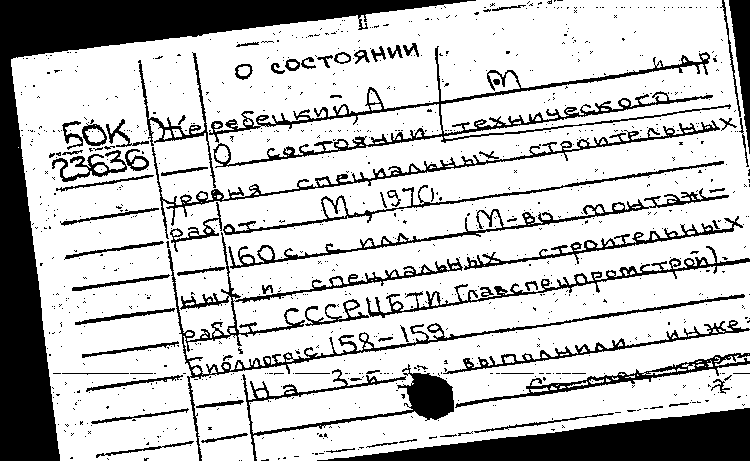 О СОСТОЯНИИ
БОК
23636
Жеребецкий, А М и др.
О состоянии технического
уровня специальных строительных
работ. М., 1970.
160 с. с илл. (М-во монтаж-
ных и специальных строительных
работ СССР. ЦБТИ Главспецпромстрой).
Библиогр: с. 158-159.
На 3-й с: выполнили инже-
См. след. карт